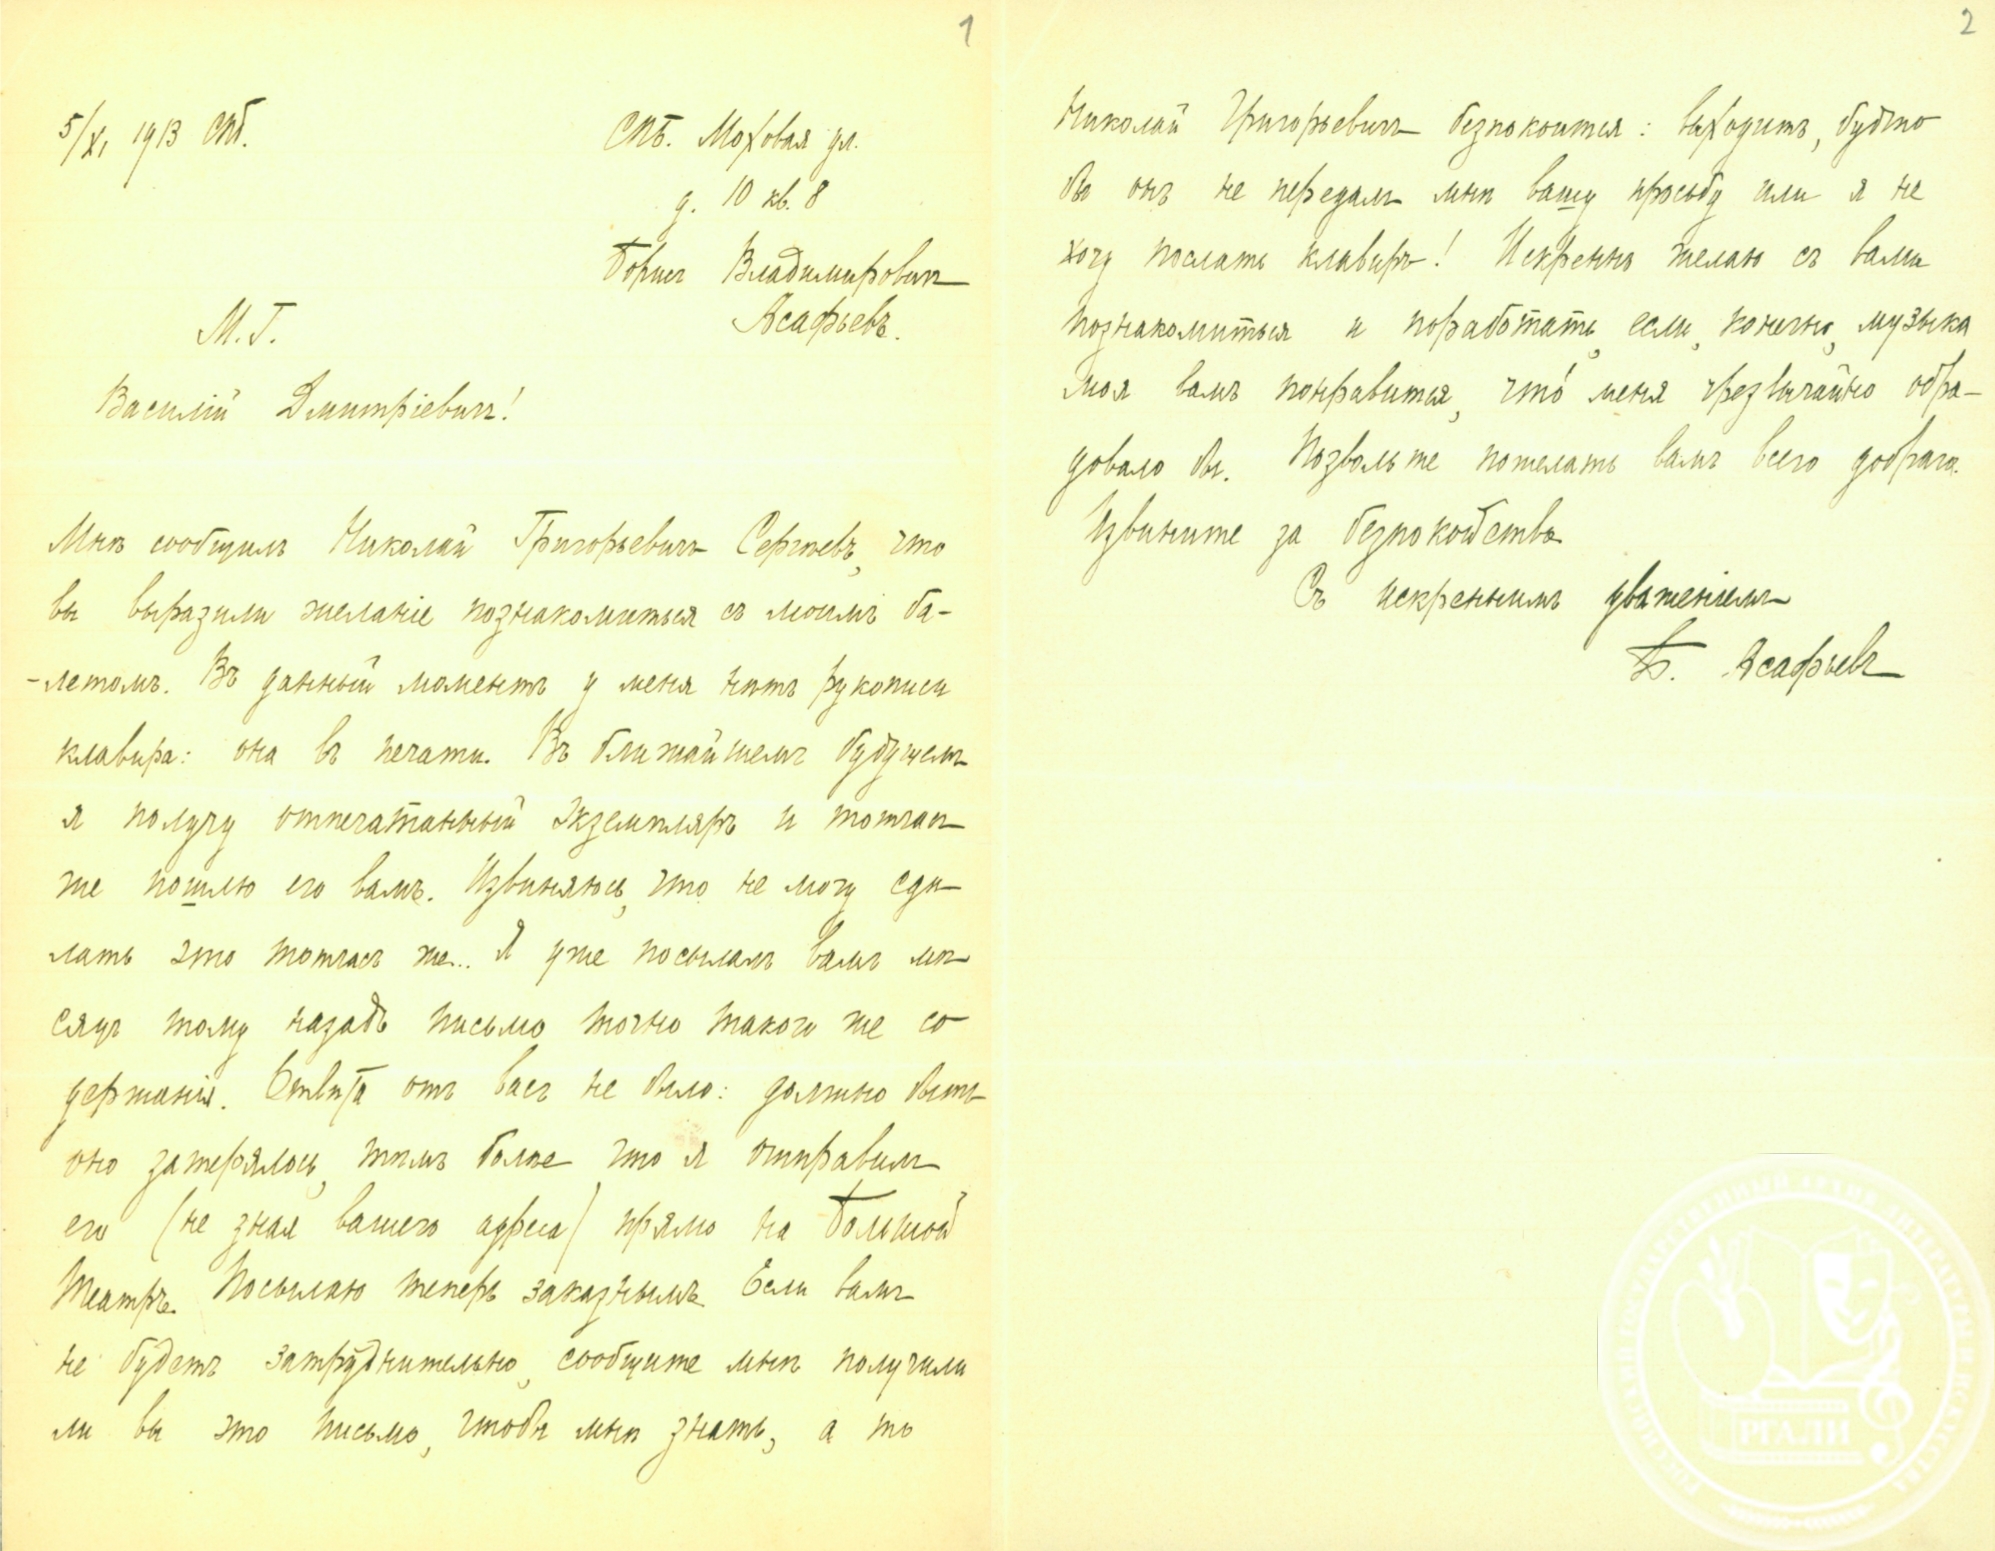 1
5/XI 1913 СПб.
СПб. Моховая ул.
д. 10 кв. 8
Борисъ Владимировичъ
Асафьевъ.
М. Г.
Василій Дмитріевичъ!
Мнѣ сообщилъ Николай Григорьевичъ Сергѣевъ, что
вы выразили желаніе познакомиться съ моимъ ба-
-летомъ. Въ данный моментъ у меня нѣтъ рукописи
клавира: она въ печати. Въ ближайшемъ будущемъ
я получу отпечатанный экземпляръ и тотчасъ
же пошлю его вамъ. Извиняюсь, что не могу сдѣ-
лать это тотчасъ же.. Я уже посылалъ вамъ мѣ-
сяцъ тому назадъ письмо точно такого же со-
держанія. Отвѣта отъ васъ не было: должно быть
оно затерялось, тѣмъ болѣе что я отправилъ
его (не зная вашего адреса) прямо на Большой
Театръ. Посылаю теперь заказнымъ. Если вамъ
не будетъ затруднительно, сообщите мнѣ получили
ли вы это письмо, чтобы мнѣ знать, а то
2
Николай Григорьевичъ безпокоится: выходитъ, будто
бы онъ не передалъ мнѣ вашу просьбу или я не
хочу послать клавиръ! Искренно желаю съ вами
познакомиться и поработать, если, конечно, музыка
моя вамъ понравится, что́ меня чрезвычайно обра-
довало бы. Позвольте пожелать вамъ всего добраго.
Извините за безпокойство
Съ искреннимъ уваженіемъ
Б. Асафьевъ
РОССИЙСКИЙ ГОСУДАРСТВЕННЫЙ АРХИВ ЛИТЕРАТУРЫ И ИСКУССТВА
РГАЛИ